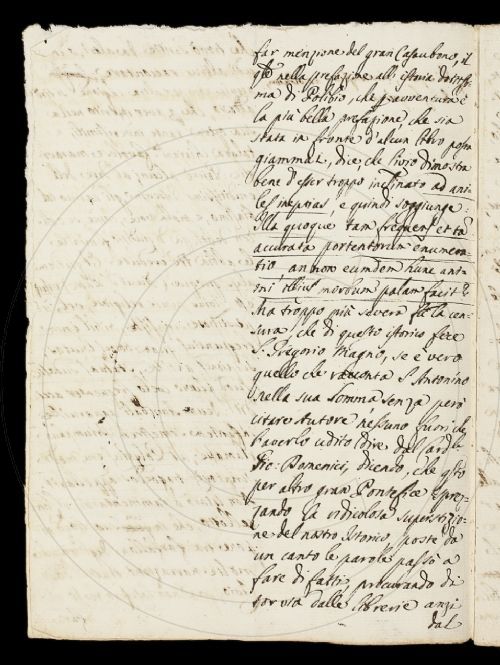 far menzione del gran Casaubono, il
qle nella prefazione all'istoria dottissi-
ma di Polibio, che p avventura è
la più bella prefazione che sia
stata in fronte d'alcun libro posta
giammai, dice, che livio dimostra
bene d'esser troppo inclinato ad ani-
les ineptias, e quindi soggiunge:
Illa quoque tam frequens et tā
accurata portentorum enumera-
tio an non eumdem hunc ani-
mi illius morbum palam facit?
Ma troppo più severa fu la cen-
sura, che di questo istorico fece
S. Gregorio Magno, se è vero
quello che racconta S. Antonino
nella sua Somma senza però
citare Autore nessuno fuori che
l'averlo udito dire dal Card.le
Gio: Domenici, dicendo, che qsto
per altro gran Pontefice sprez-
zando la ridicolosa superstizio-
ne del nostro Istorico, poste da
un canto le parole passò a
fare di fatti, procurando di
tor via dalle librerie anzi
dal